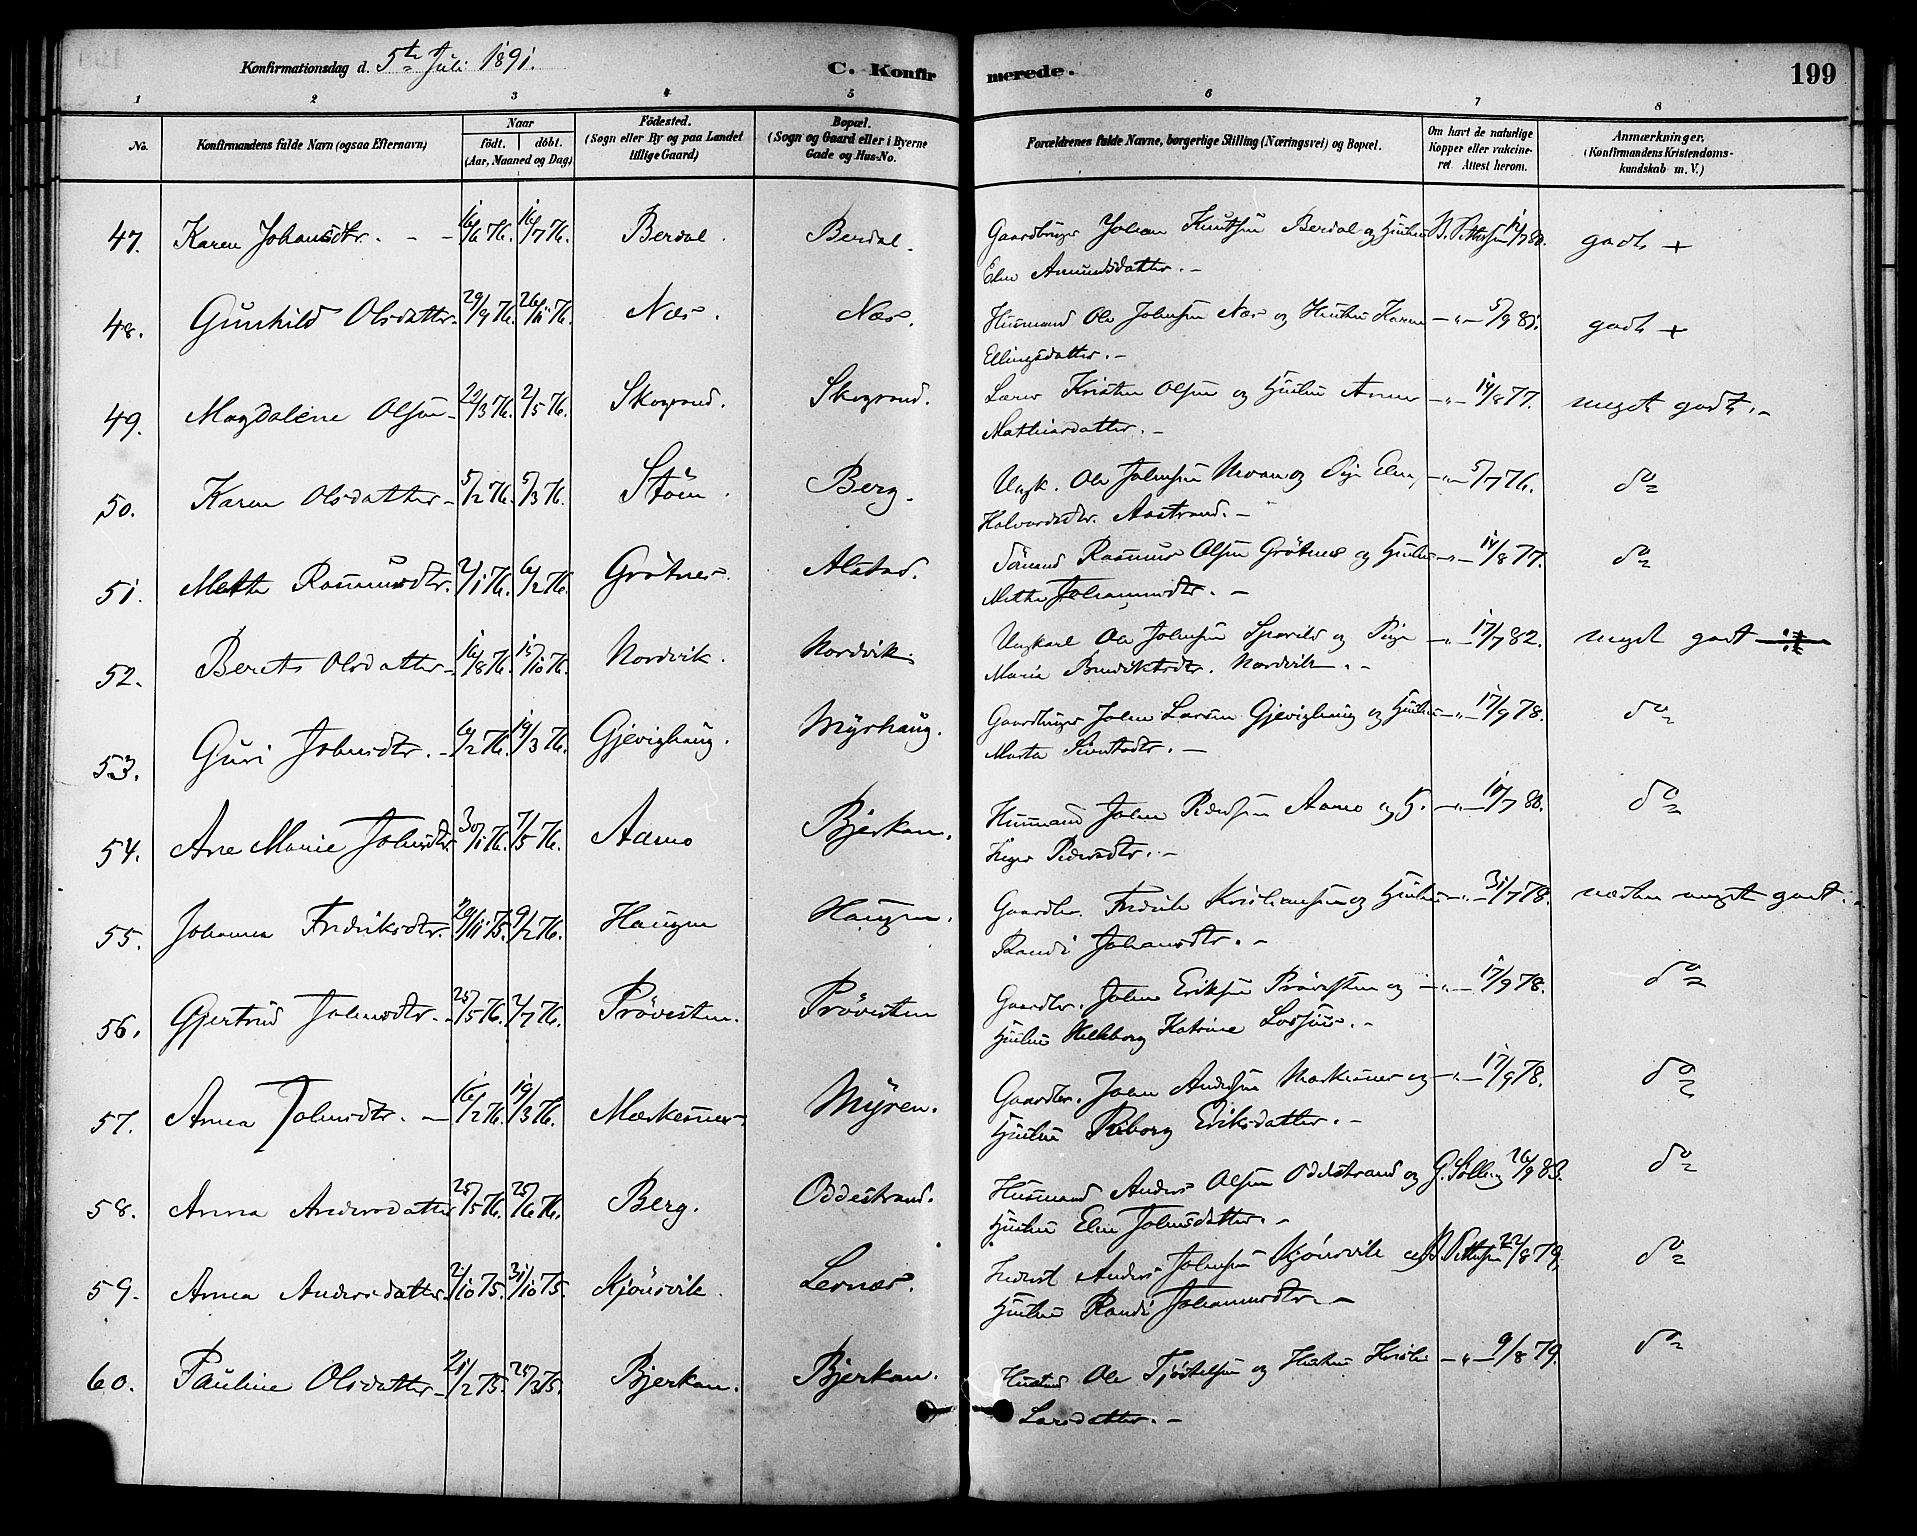 Konfirmationsdag d. 5te Juli 1891.
C. Konfirmerede.
199
1 2 3 4 5 6 7 8
No.
Konfirmandens fulde Navn (ogsaa Efternavn)
Naar
født. døbt.
(Aar, Maaned og Dag)
Fødested.
(Sogn eller By og paa Landet
tillige Gaard)
Bopæl.
(Sogn og Gaard eller i Byerne
Gade og Hus-No.
Forældrenes fulde Navne, borgerlige Stilling (Næringsvei) og Bopæl.
Om havt de naturlige
Kopper eller vakcine-
ret. Attest herom.
Anmærkninger.
(Konfirmandens Kristendoms-
kundskab m. V.)
47. Karen Johansdtr. 16/6 76. 16/7 76. Berdal. Berdal. Gaardbruger Johan Knutsen Berdal og Hustru B. Pettersen 80. godt +
Elen Amundsdatter.
48. Gunhild Olsdatter 29/9 76. 26/11 76. Næs. Næs. Husmand Ole Johnsen Næs og Hustru Karen 5/9 81. godt +
Ellingsdatter.
49. Magdalene Olsen 22/3 76. 2/5 76. Skogrand. Skogrand. Lærer Kristen Olsen og Hustru Anne 14/8 77. meget godt.
Mathiasdatter.
50. Karen Olsdatter 5/2 76. 5/3 76. Støen. Berg. Ungk. Ole Johnsen og Pige Elen 5/7 76. do
Halvordsdtr. Aastrand.
51. Mette Rasmusdtr. 2/1 76. 6/2 76. Grötnes. Alstad. Rasmus Olsen Grötnes og Hustru 14/8 77. do
Mette Johannesdtr.
52. Beret Olsdatter 16/8 76. 15/10 76. Nordvik. Nordvik. Ungkarl Ole Johnsen og Pige 17/7 82. meget godt
Maria Benediktsdtr. Nordvik.
53. Guri Johnsdtr. 6/2 76. 19/3 76. Gjevighaug. Myrhaug. Gaardbruger John Larsen Gjevighaug og Hustru 17/9 78. do
Marta Sivertsdtr.
54. Ane Marie Johnsdtr. 30/1 76. 7/5 76. Aamo Bjerkan. Husmand John Pedersen Aamo og H. 10/7 80. do
Inger Pedersdtr.
55. Johanna Fredriksdtr. 29/11 75. 9/2 76. Haugen Haugen. Gaardbr. Fredrik Kristiansen og Hustru 31/7 78. næsten meget godt.
Randi Johansdtr.
56. Gjertrud Johnsdtr. 25/5 76. 2/7 76. Prövesten. Prövesten Gaardbr. John Eriksen Prövesten og 17/9 78. do
Hustru Katrine
57. Anna Johnsdtr. 16/2 76. 19/3 76. Mæskesnes Myren. Gaardbr. John Andersen Mæskesnes og 17/9 78. do
Hustru Eriksdatter.
58. Anna Andersdatter 25/5 76. 25/6 76. Berg. Oddestrand. Husmand Anders Olsen Oddestrand og G. Sölling 26/9 83. do
Hustru Elen Johnsdatter.
59. Anna Andersdatter 2/10 75. 31/10 75. Kjönsvik. Lernæs. Inderst Anders Johnsen Kjönsvik og B. Pettersen 22/8 79. do
Hustru Randi Johannesdtr.
60. Pauline Olsdatter 21/2 75. 25/3 75. Bjerkan. Bjerkan. Ole og Hustru 9/8 79. do
Larsdatter.